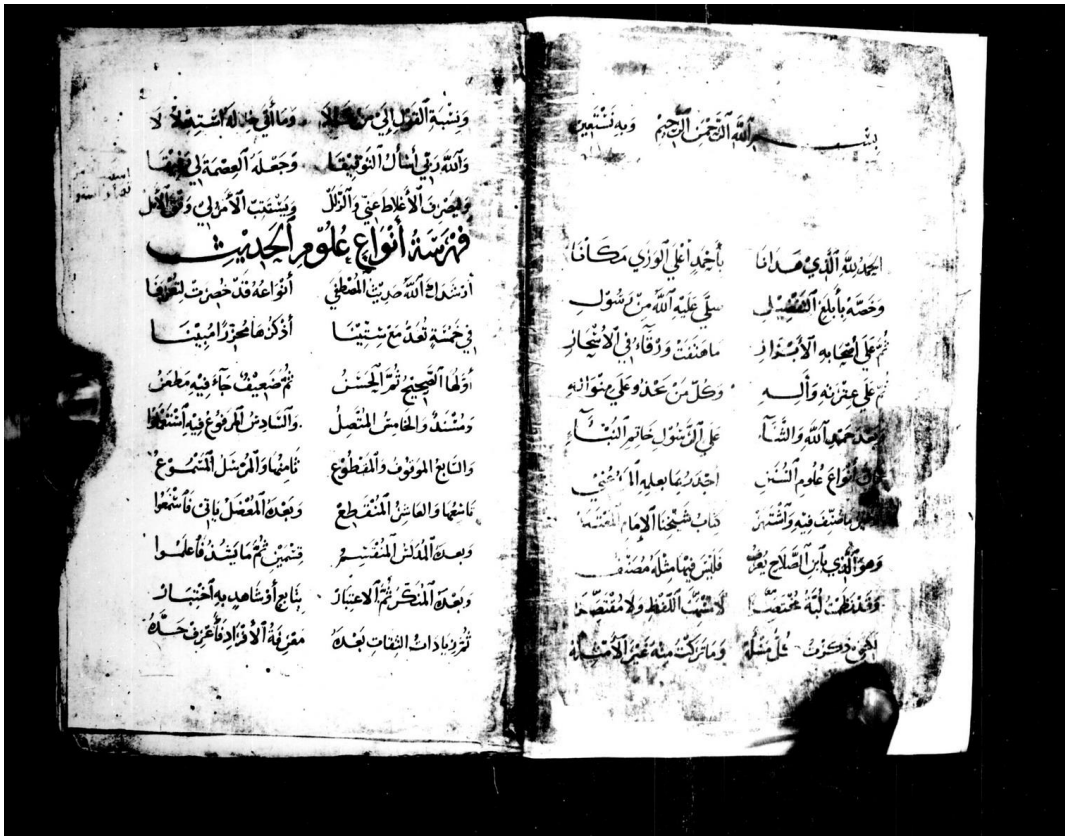 بسم الله الرحمن الرحيم وبه نستعين
الحمد لله الذي هدانا بأحمد أعلى الورى مكانا
وخصه بأبلغ التفضيل صلى عليه الله من رسول
ثم على أصحابه الأبرار ما هتفت ورقاء في الأشجار
ثم على عترته وآله وكل من يحذو على منواله
وبعد حمد الله والثناء على الرسول خاتم
أنواع علوم السنن
صنف فيه واشتهر كتاب شيخنا الإمام المعتبر
وهو الذي بابن الصلاح يعرف فليس فيها مثله مصنف
وقد نظمت لبه مختصرا لا مسهب اللفظ ولا مقتصرا
ذكرت كل مسئله وما تركت منه غير الأمثله
ونسبة القول إلى من وما أتى لا
والله ربي أسأل التوفيقا وجعله العصمة لي
ويصرف الأغلاط عني والزلل ويستتب الأمر لي
فهرسة أنواع علوم الحديث
أرشدك الله حديث المصطفى أنواعه قد حصرت لتعرفا
في خمسة تعد مع ستينا أذكرها محررا مبينا
أولها الصحيح ثم الحسن ثم ضعيف جاء فيه مطعن
ومسند والخامس المتصل والسادس المرفوع فيه
والسابع الموقوف والمقطوع ثامنها والمرسل المسموع
تاسعها والعاشر المنقطع وبعده المعضل يأتي فاسمعوا
وبعده المدلس المنقسم قسمين ثم ما يشذ فاعلموا
وبعده المنكر ثم الاعتبار بتابع أو شاهد به اختبار
ثم زيادات الثقات بعده معرفة الأفراد فاعرف حده